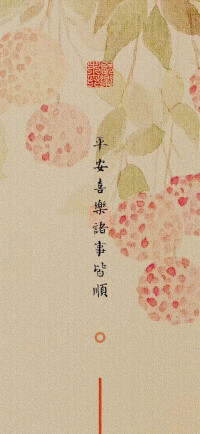 平安喜樂諸事皆順